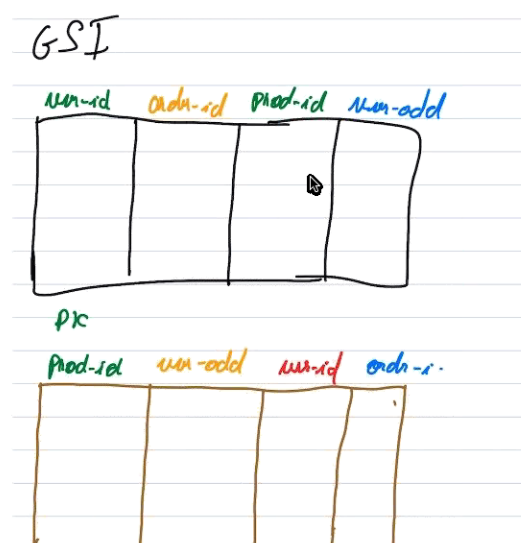 GSI
usr-id ordr-id prod-id usr-add
PK
prod-id usr-add usr-id ordr-i.